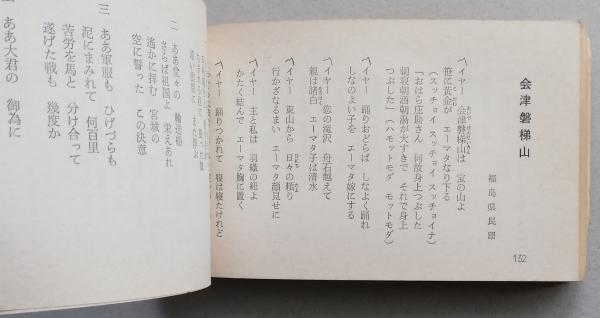 会津磐梯山
福島県民謡
〽イヤー 会津磐梯山は 宝の山よ
笹に黄金が エーマタなり下る
(スッチョイ スッチョイ スッチョイナ)
「おはら庄助さん 何故身上つぶした
朝寝朝酒朝湯が大すきで それで身上
つぶした」(ハモットモダ モットモダ)
〽イヤー 踊りおどらば しなよく踊れ
しなのよい子を エーマタ嫁にする
〽イヤー 恋の滝沢 舟石越えて
親は諸白 エーマタ子は清水
〽イヤー 東山から 日々の頼り
行かざなるまい エーマタ顔見せに
〽イヤー 主と私は 羽織の紐よ
かたく結んで エーマタ胸に置く
〽イヤー 踊りつかれて 寝は寝たけれど
132
二 ああ堂々の 輸送船
さらば祖国よ 栄えあれ
遙かに拝む 宮城の
空に誓った この決意
三 ああ軍服も ひげづらも
泥にまみれて 何百里
苦労を馬と 分け合って
遂げた戦も 幾度か
ああ大君の 御為に